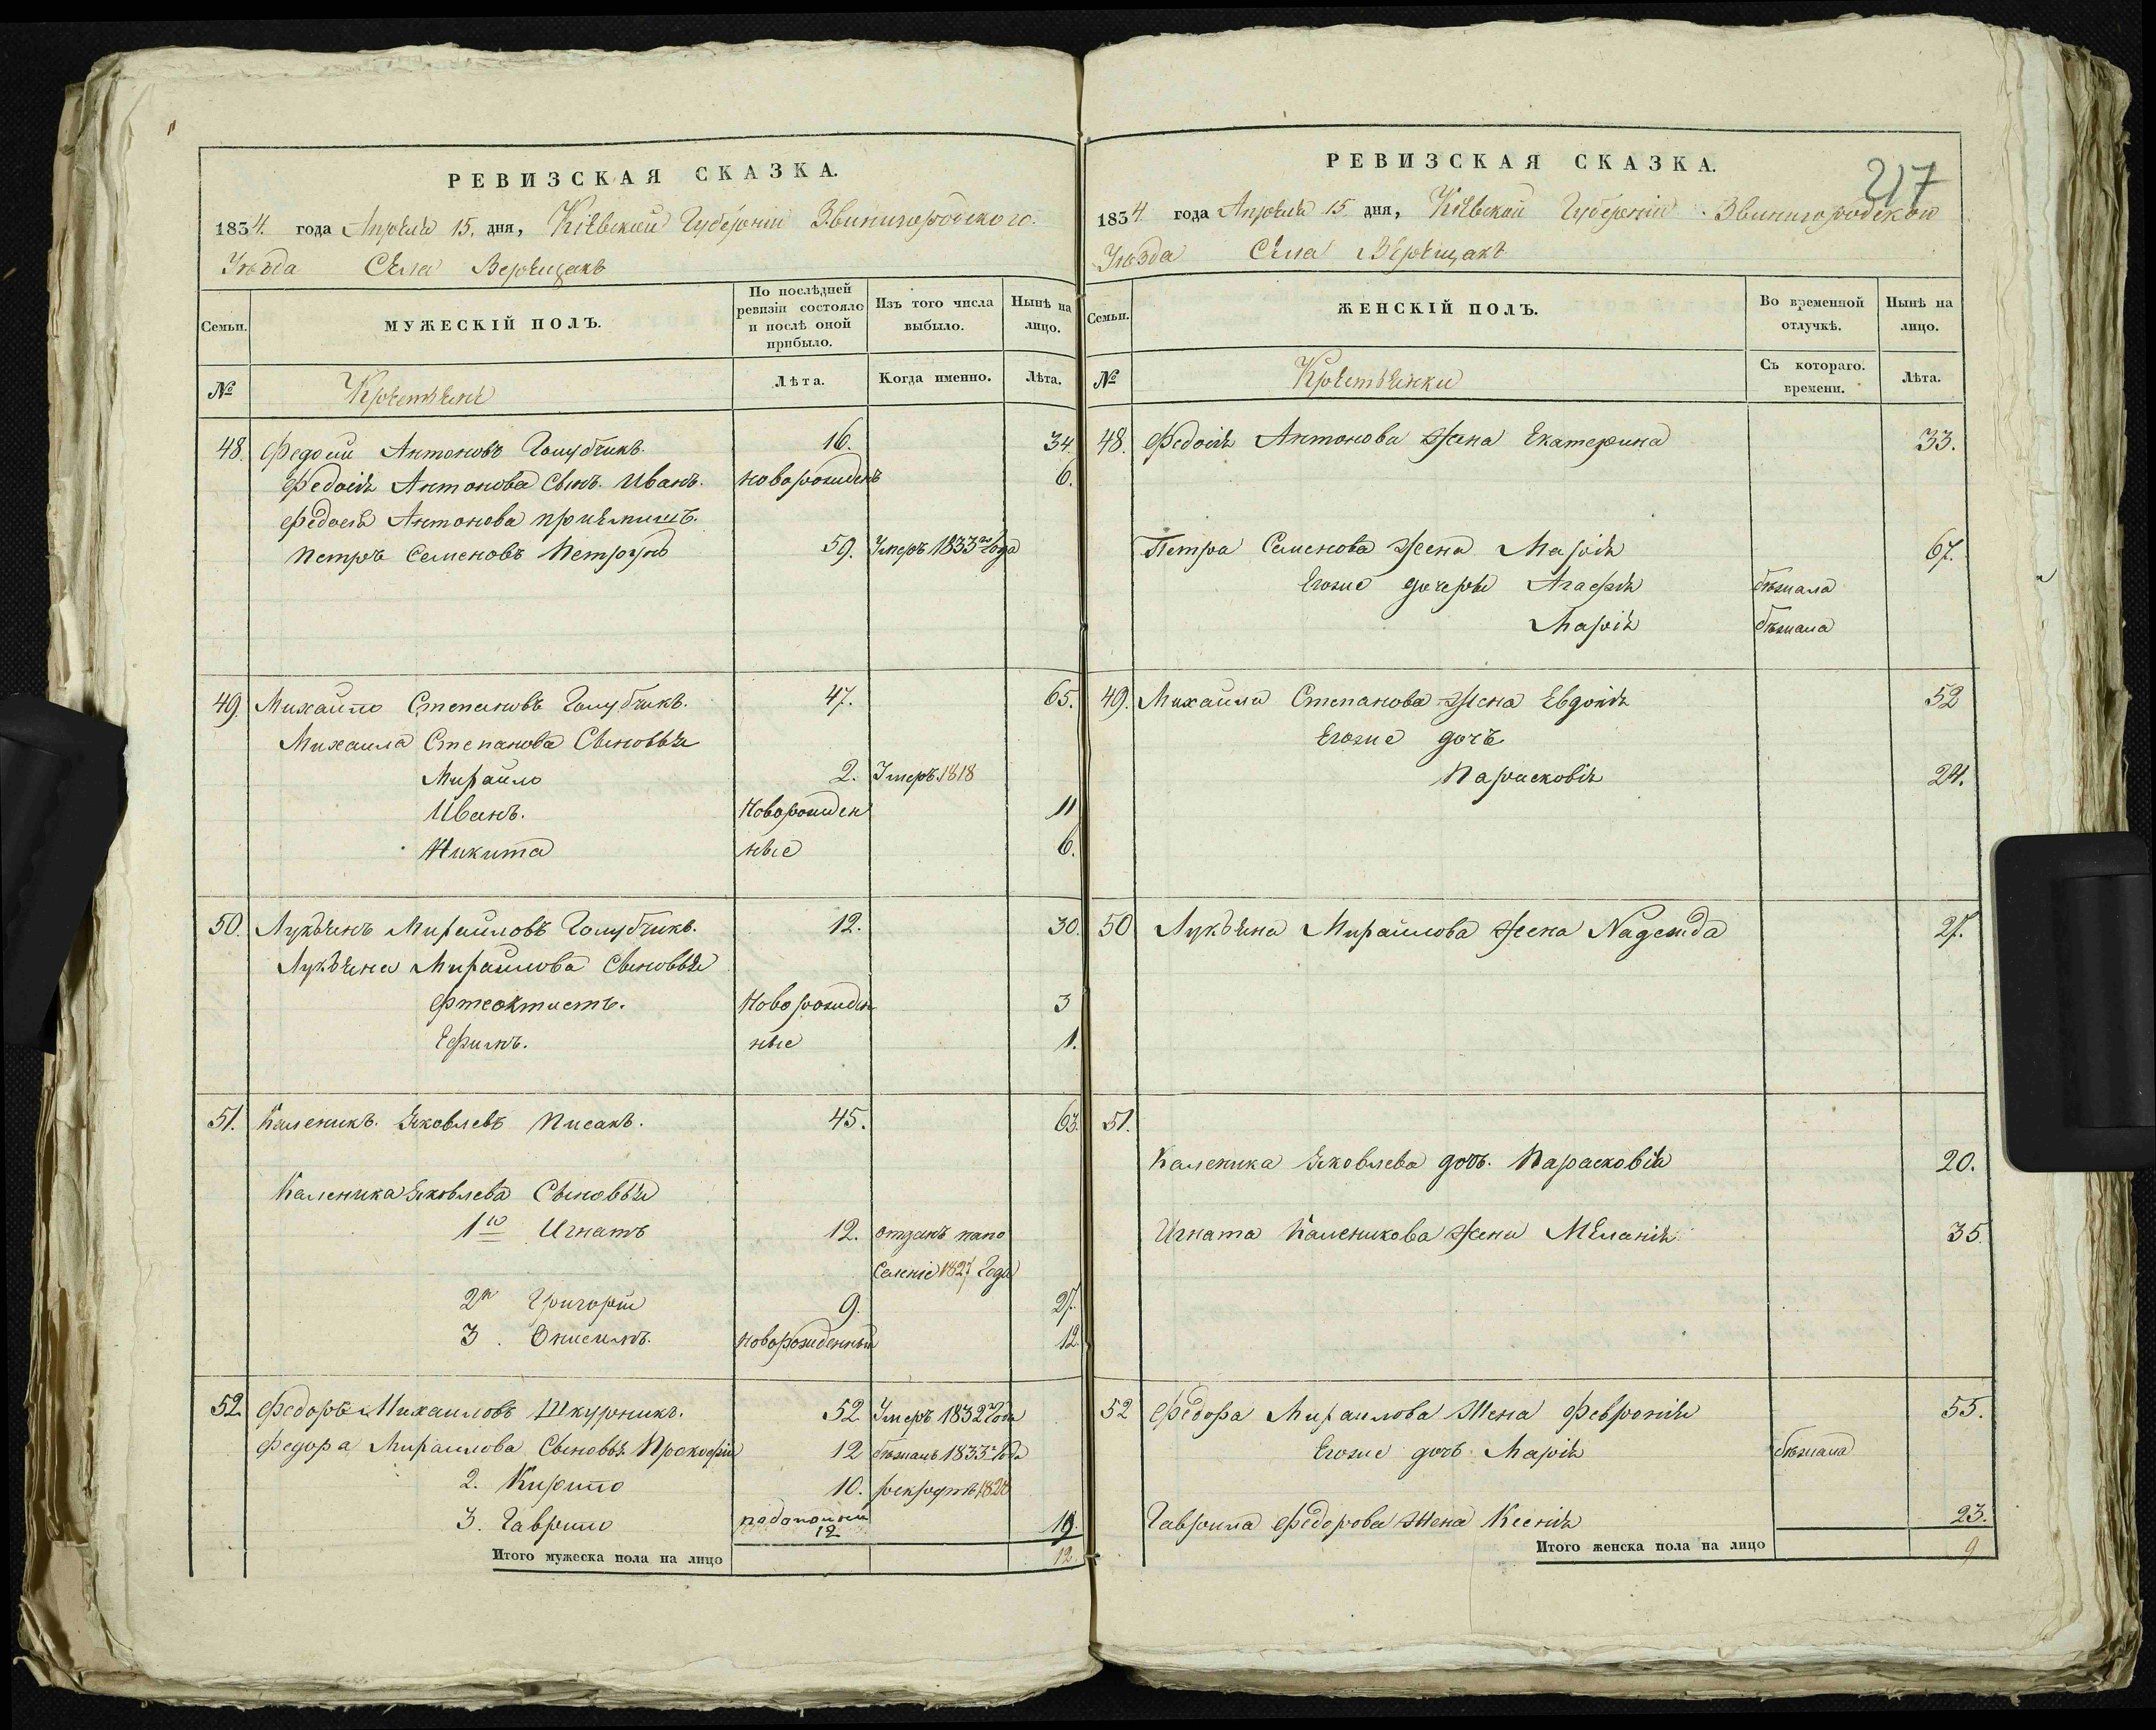 РЕВИЗСКАЯ СКАЗКА.
1834. года Апреля 15. дня, Кіевской Губерніи Звинигородского
Уезда Села Верещакъ
Семьи. МУЖЕСКІЙ ПОЛЪ. По послѣдней ревизіи состояло и послѣ оной прибыло. Изъ того числа выбыло. Нынѣ на лицо.
№ Крестьяне Лѣта. Когда именно. Лѣта.
48. Федосий Антоновъ Голубчикъ. 16. 34.
Федосія Антонова Сынъ. Иванъ. новорожденъ 6.
Федосея Антонова приемишъ.
Петръ Семеновъ 59. Умеръ 1833го Года
49. Михайло Степановъ Голубчикъ. 47. 65.
Михаила Степанова Сыновья
Михайло 2. Умеръ 1818
Иванъ. Новорожден 11
Никита ные 6.
50. Лукьянъ Михайловъ Голубчикъ. 12. 30.
Лукьяна Михайлова Сыновья
Фтеоктистъ. Новорожден 3
Ефимъ. ные 1.
51. Каленикъ Яковлевъ Писакъ. 45. 63.
Каленика Яковлева Сыновья
1й Игнатъ 12. отданъ напо
селеніе 1827 Года
2й Григорій 9. 27.
3. Онисимъ. новорожденный 12.
52 Федоръ Михаиловъ Шкурникъ. 52 Умеръ 1832 Года
Федора Михаилова Сыновья Прокофій 12 бежалъ 1833 Года
2. Кирило 10. рекрутъ 1828
3. Гаврило 12 19.
Итого мужеска пола на лицо 12.
217
РЕВИЗСКАЯ СКАЗКА.
1834 года Апреля 15. дня, Кіевской Губерніи Звинигородской
Уезда Села Верещакъ
Семьи. ЖЕНСКІЙ ПОЛЪ. Во временной отлучкѣ. Нынѣ на лицо.
№ Крестьянки Съ котораго. времени. Лѣта.
48. Федосія Антонова Жена Екатерина 33.
Петра Семенова Жена Марія 67.
Егоже дочеры Агафія бежала
Марія бежала
49. Михаила Степанова Жена Евдокія 52
Егоже дочь
Парасковія 24.
50 Лукьяна Михайлова Жена Надежда 27.
51.
Каленика Яковлева дочь. Парасковія 20.
Игната Каленикова Жена Меланія 35.
52 Федора Михаилова Жена Февронія 55.
Егоже дочь Марія бежала
Гаврила Федорова Жена Ксенія 23.
Итого женска пола на лицо 9